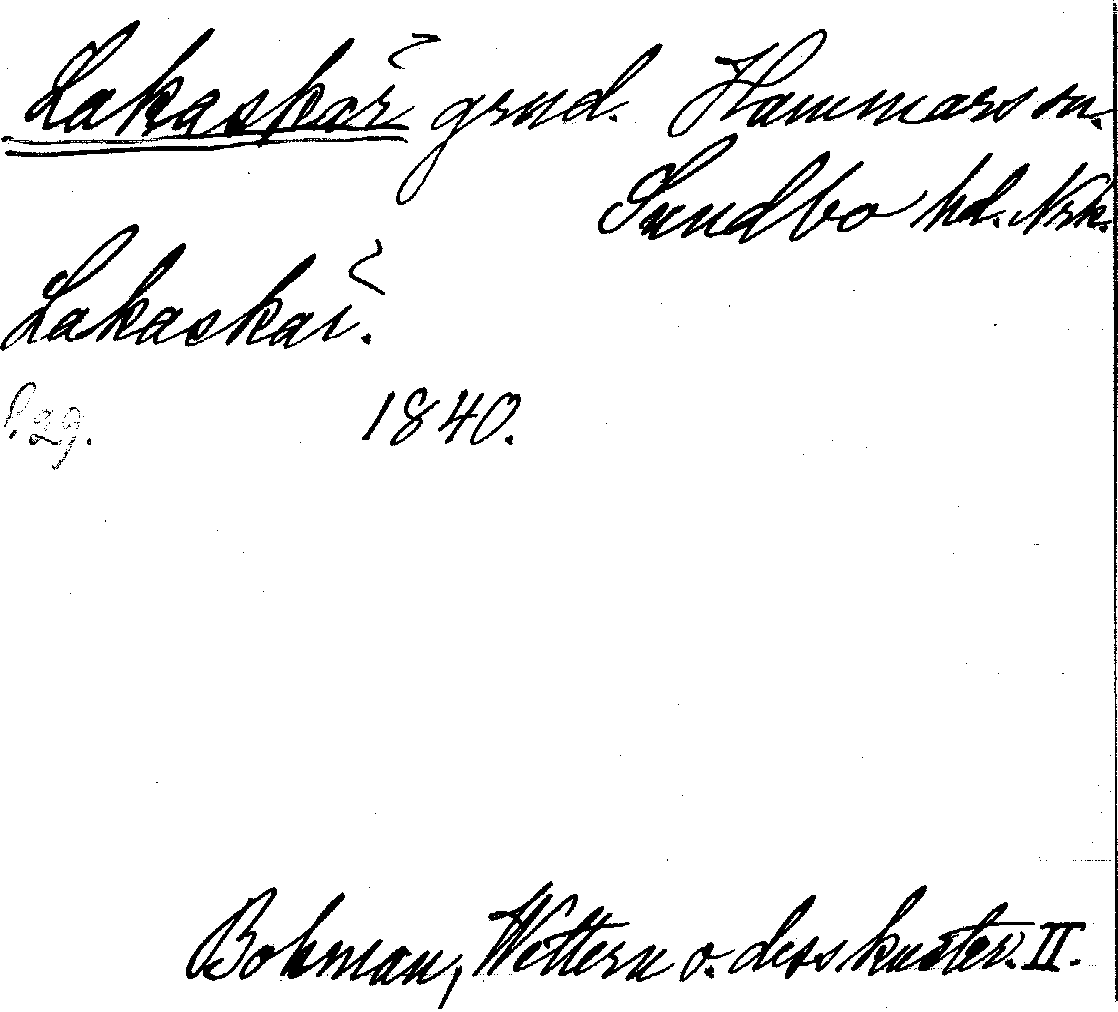 Lakaskär grud. Hammars sn.
Sundbo hd. Nrk.
Lakaskär.
S. 29. 1840.
Bohman, Wettern o. dess kuster. II.